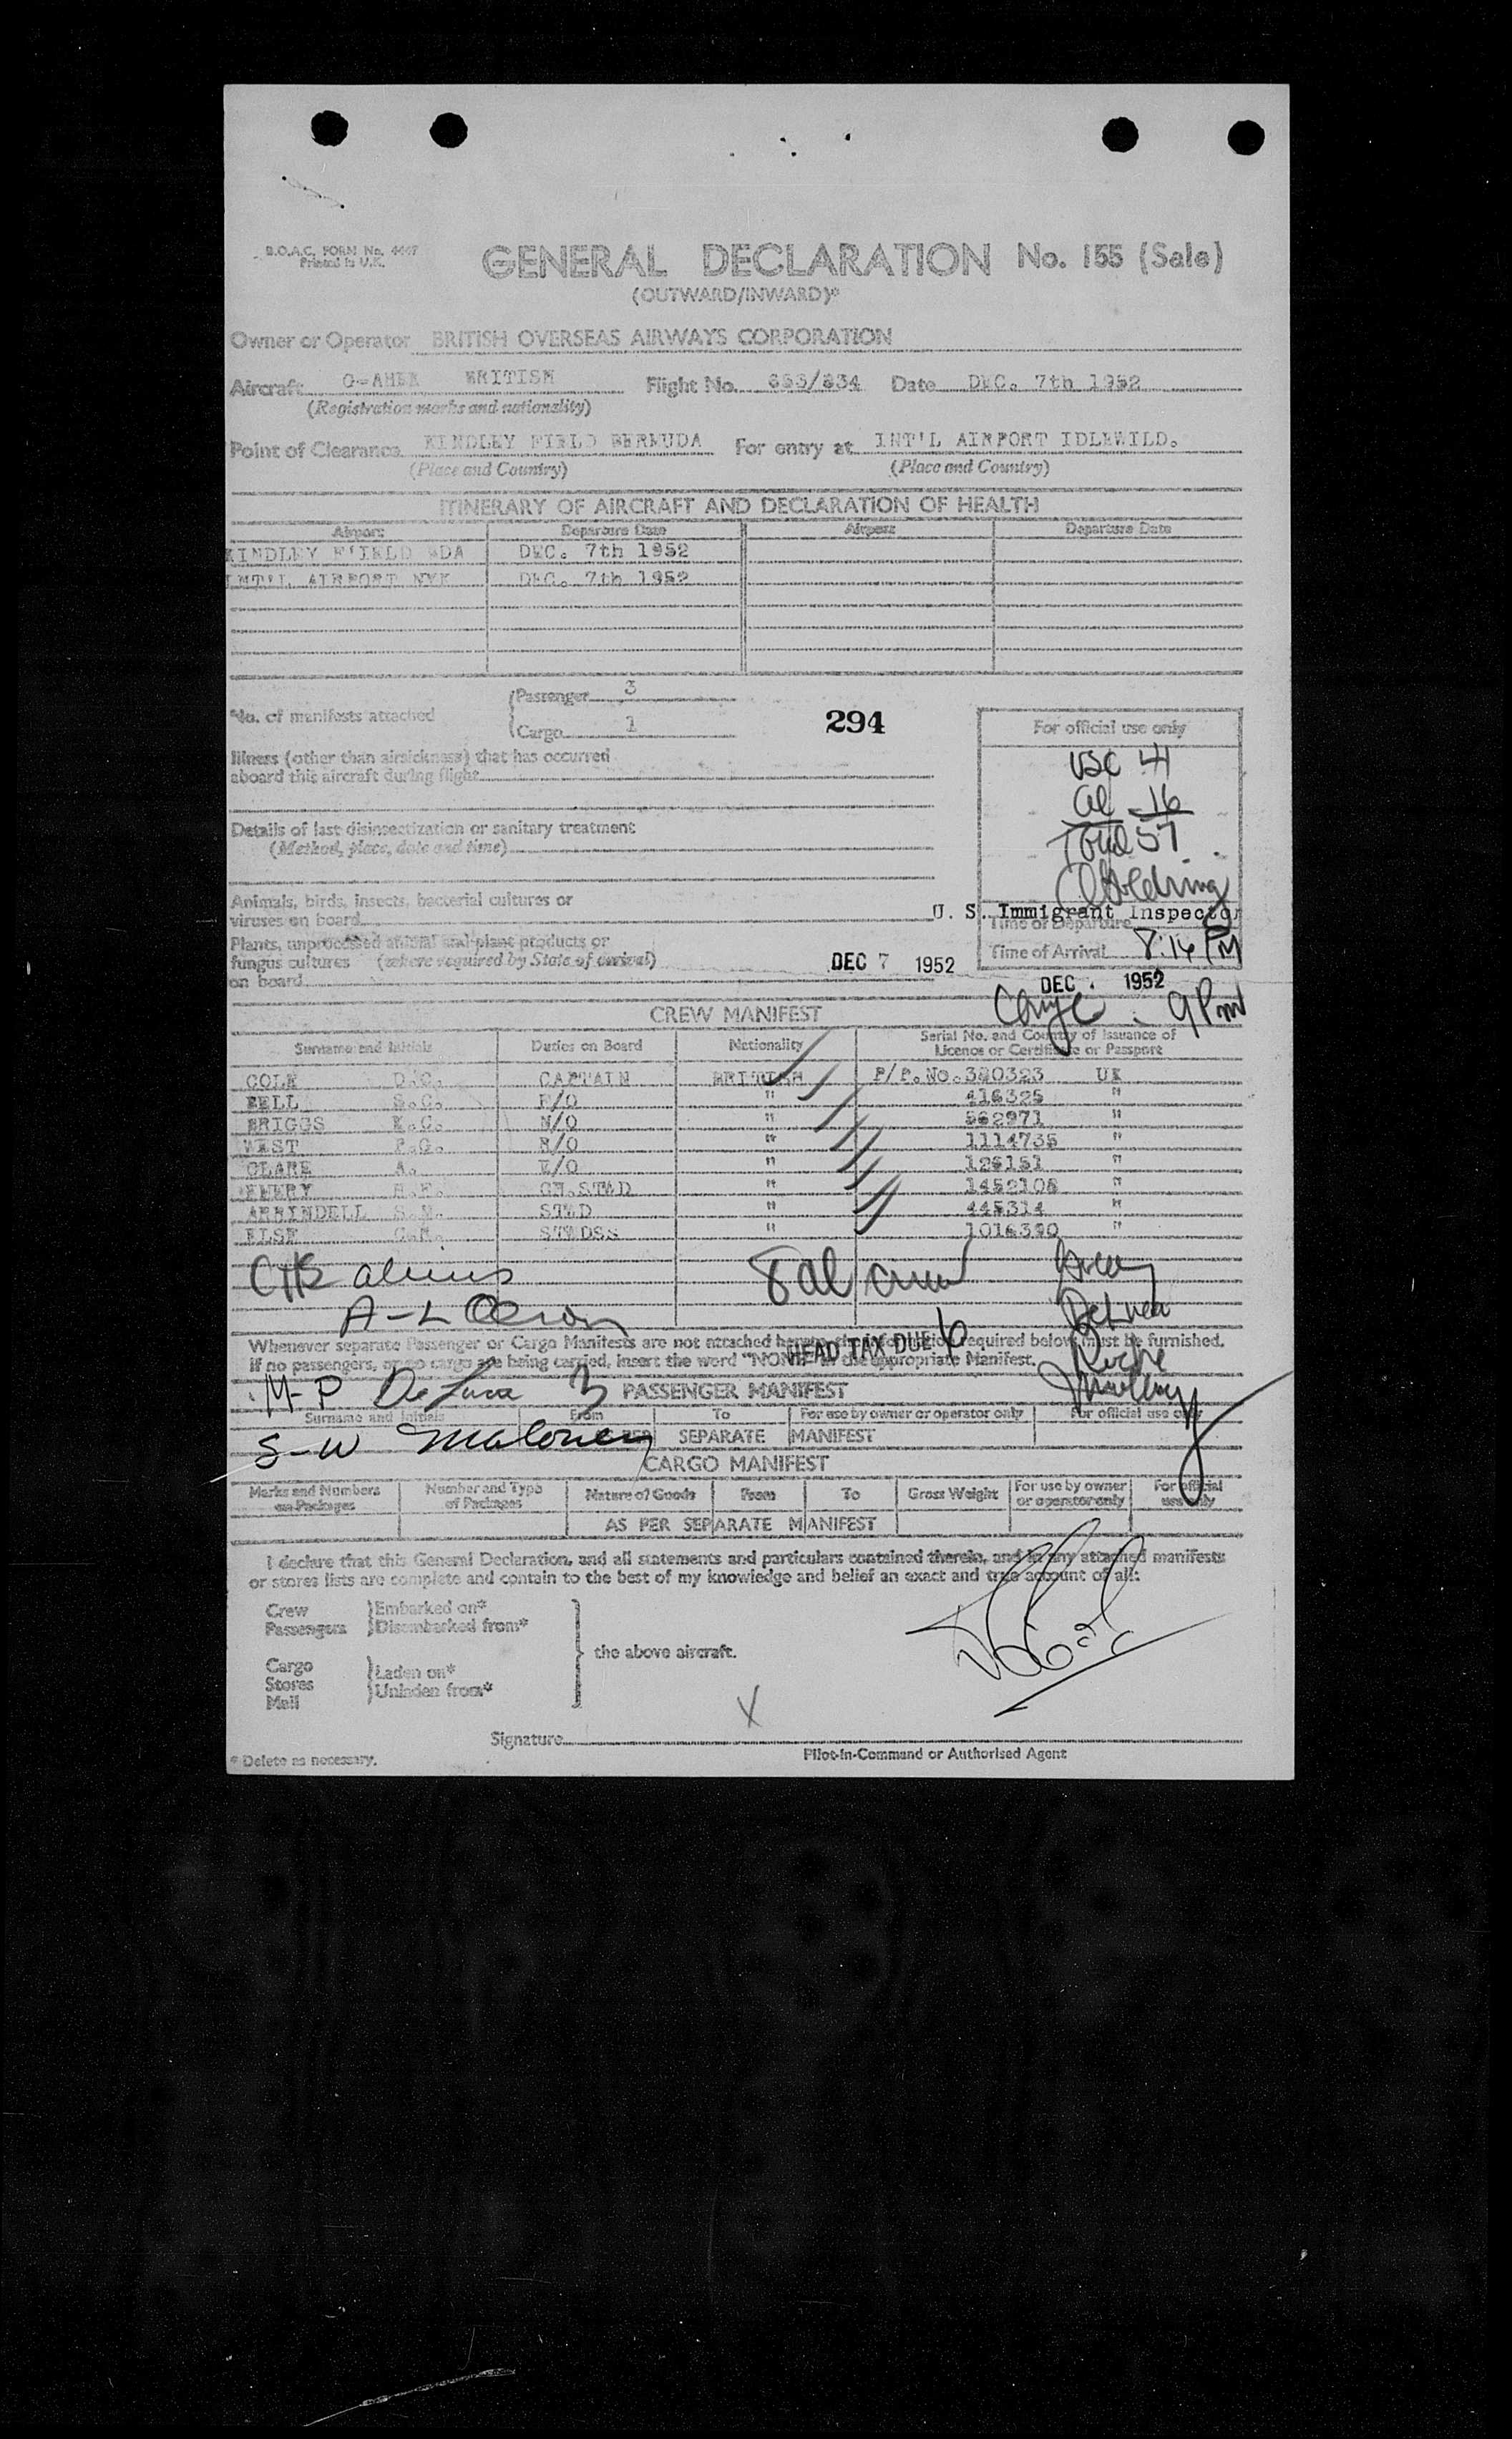 B.O.A.C. FORM No. 4447
Printed in U.K.
GENERAL DECLARATION No. 155 (Sale)
(OUTWARD/INWARD)*
Owner or Operator BRITISH OVERSEAS AIRWAYS CORPORATION
Aircraft BRITISH Flight No. Date DEC. 7th 1952
(Registration marks and nationality)
Point of Clearance KINDLEY FIELD BERMUDA For entry at INT'L AIRPORT IDLEWILD.
(Place and Country) (Place and Country)
ITINERARY OF AIRCRAFT AND DECLARATION OF HEALTH
Airport Departure Date Airport Departure Date
KINDLEY FIELD BDA DEC. 7th 1952
INT'L AIRPORT NYK DEC. 7th 1952
No. of manifests attached
Passenger 3
Cargo 1
294
For official use only
USC 41
al 16
Total 57
Illness (other than airsickness) that has occurred
aboard this aircraft during flight
Details of last disinsectization or sanitary treatment
(Method, place, date and time)
Animals, birds, insects, bacterial cultures or
viruses on board
U. S. Immigrant Inspector
Time of Departure
Plants, unprocessed animal and plant products or
fungus cultures (where required by State of arrival)
on board
DEC 7 1952
Time of Arrival 8:14 PM
DEC 1952
9 PM
CREW MANIFEST
Surname and Initials Duties on Board Nationality Serial No. and Country of Issuance of
Licence or Certificate or Passport
COLE D.C. CAPTAIN BRITISH P/P.No.320323 UK
BELL S.C. F/O " 416325 "
BRIGGS K.C. N/O " 862971 "
WEST P.G. R/O " 1114735 "
CLARE A. E/O " 125151 "
EMERY H.F. CH.STWD " 1452105 "
ARRINDELL S.N. STWD " 445314 "
ELSE C.M. STWDSS " 1016390 "
8 al crew
A-L
Whenever separate Passenger or Cargo Manifests are not attached hereto, the information required below must be furnished.
If no passengers, or no cargo are being carried, insert the word "NONE" in the appropriate Manifest.
HEAD TAX DUE 6
M-P De Luca 3
PASSENGER MANIFEST
Surname and Initials From To For use by owner or operator only For official use only
S-W Maloney
PER SEPARATE MANIFEST
CARGO MANIFEST
Marks and Numbers on Packages Number and Type of Packages Nature of Goods From To Gross Weight For use by owner or operator only For official use only
AS PER SEPARATE MANIFEST
I declare that this General Declaration, and all statements and particulars contained therein, and in any attached manifests
or stores lists are complete and contain to the best of my knowledge and belief an exact and true account of all:
Crew
Passengers
Embarked on*
Disembarked from*
the above aircraft.
Cargo
Stores
Mail
Laden on*
Unladen from*
X
Signature
Pilot-in-Command or Authorised Agent
* Delete as necessary.